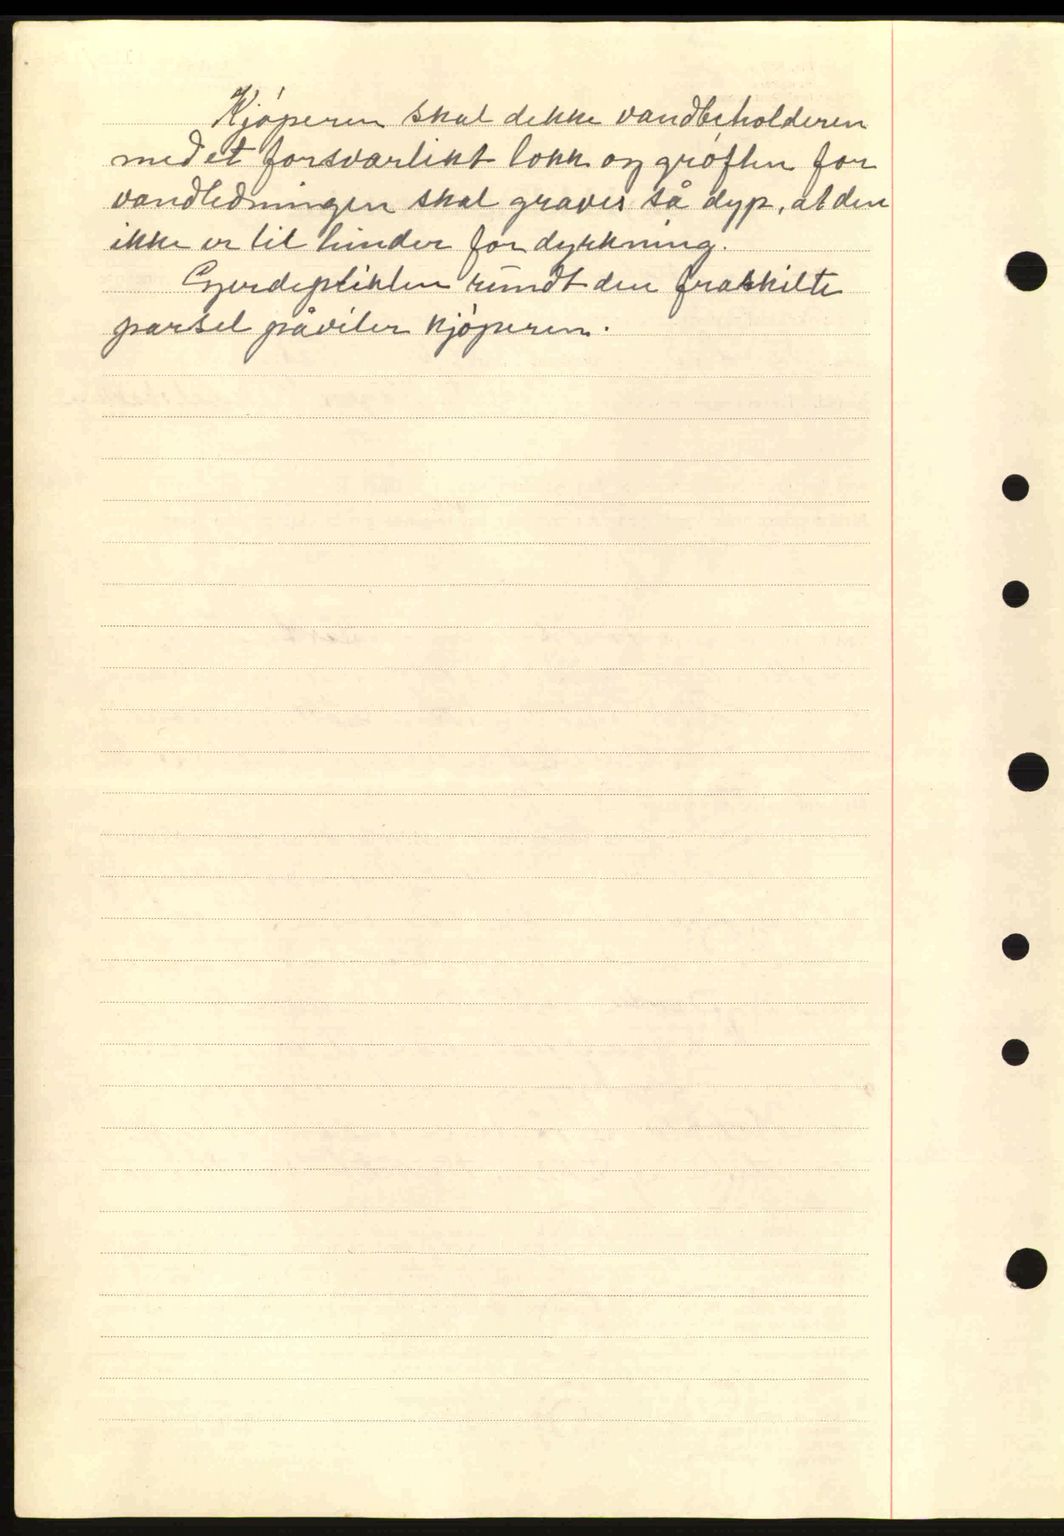 Kjøperen skal dekke vandbeholderen
med et forsvarlikt lokk og grøften for
vandledningen skal graves så dyp, at den
ikke er til hinder for dyrkning.
Gjerdeplikten rundt den fraskilte
parsel påviler kjøperen.